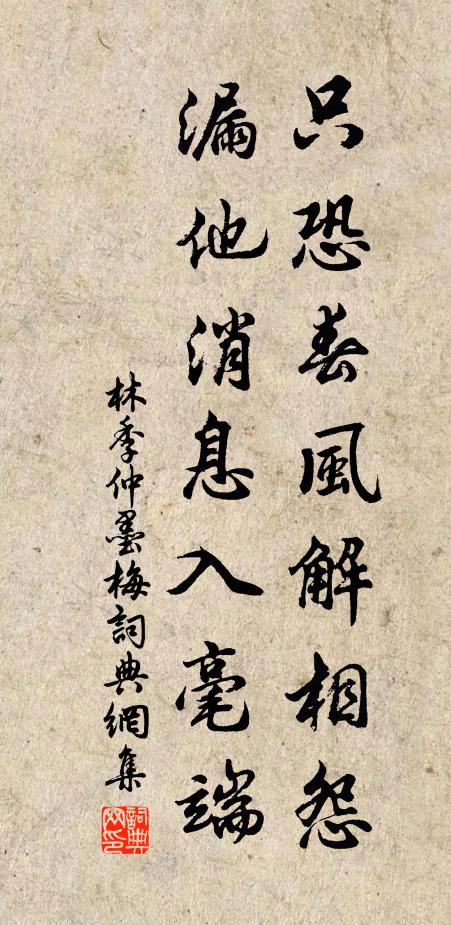 只恐春風解相怨
漏他消息入毫端
林季仲墨梅詞典網集
詞典網印